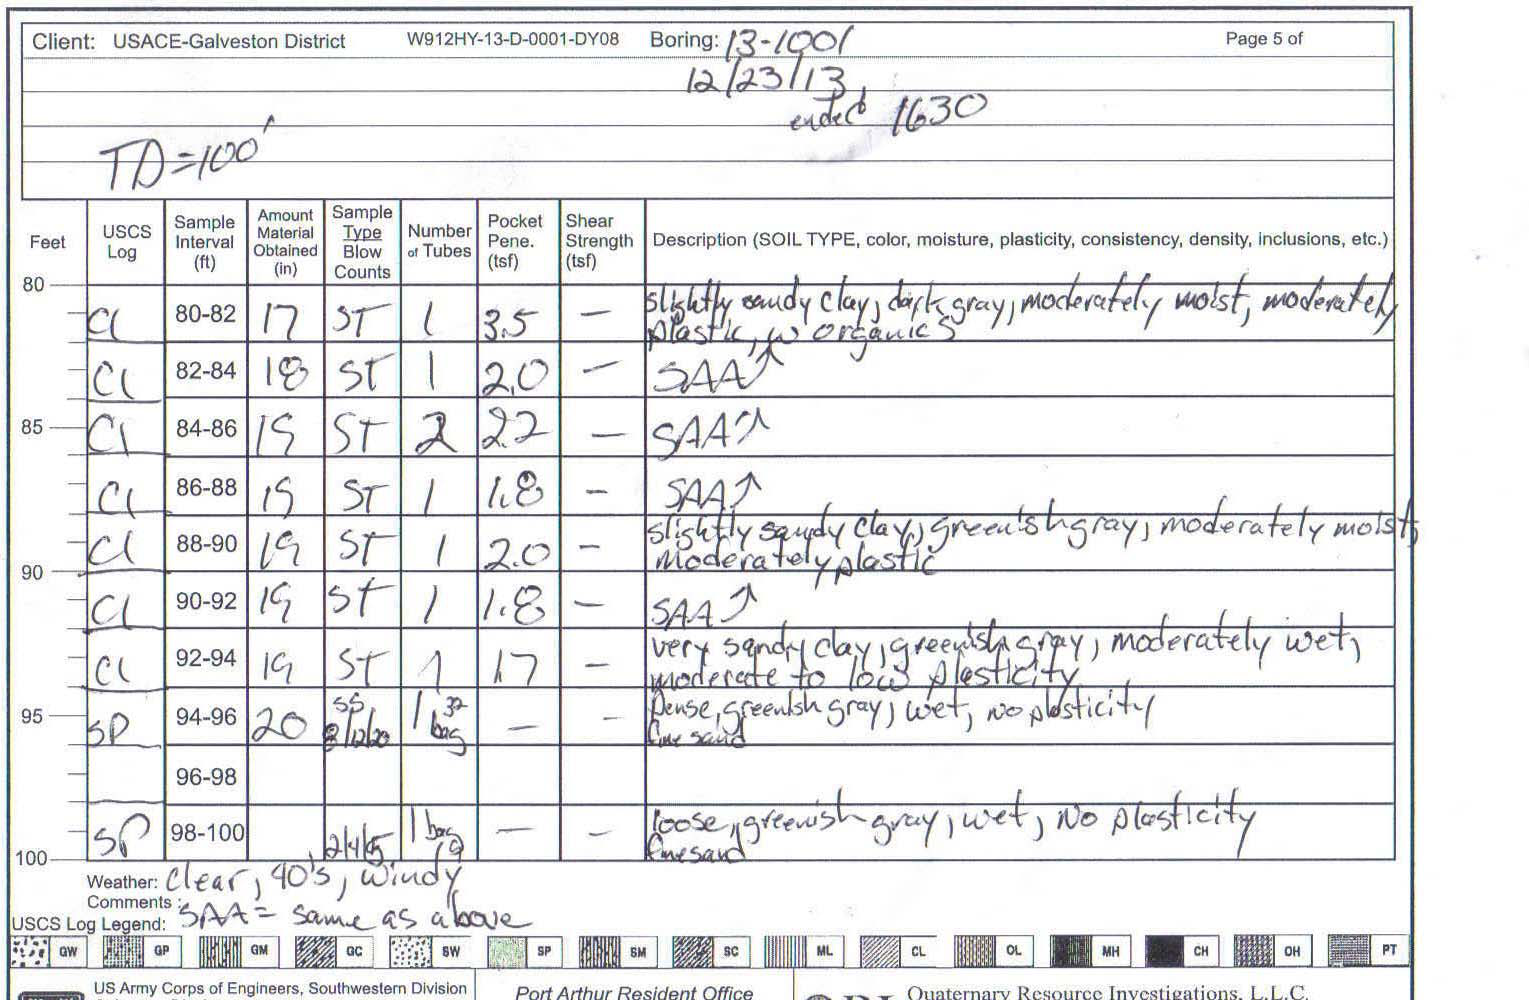 Client: USACE-Galveston District W912HY-13-D-0001-DY08 Boring: 13-1001 Page 5 of
12/23/13
ended 1630
TD=100'
Feet USCS Log Sample Interval (ft) Amount Material Obtained (in) Sample Type Blow Counts Number of Tubes Pocket Pene. (tsf) Shear Strength (tsf) Description (SOIL TYPE, color, moisture, plasticity, consistency, density, inclusions, etc.)
80
CL 80-82 17 ST 1 3.5 — slightly sandy clay, dark gray, moderately moist, moderately
plastic, w organics
CL 82-84 18 ST 1 2.0 — SAA↑
85 CL 84-86 19 ST 2 2.2 — SAA↑
CL 86-88 19 ST 1 1.8 — SAA↑
CL 88-90 19 ST 1 2.0 — slightly sandy clay, greenish gray, moderately moist,
moderately plastic
90
CL 90-92 19 ST 1 1.8 — SAA↑
CL 92-94 19 ST 1 1.7 — very sandy clay, greenish gray, moderately wet,
moderate to low plasticity
95 SP 94-96 20 SS 8/12/20 1 bag 32 — — Dense, greenish gray, wet, no plasticity
fine sand
96-98
SP 98-100 2/4/5 1 bag 9 — — loose, greenish gray, wet, No plasticity
fine sand
100
Weather: Clear, 40's, windy
Comments : SAA = same as above
USCS Log Legend:
GW GP GM GC SW SP SM SC ML CL OL MH CH OH PT
US Army Corps of Engineers, Southwestern Division Port Arthur Resident Office Quaternary Resource Investigations, L.L.C.